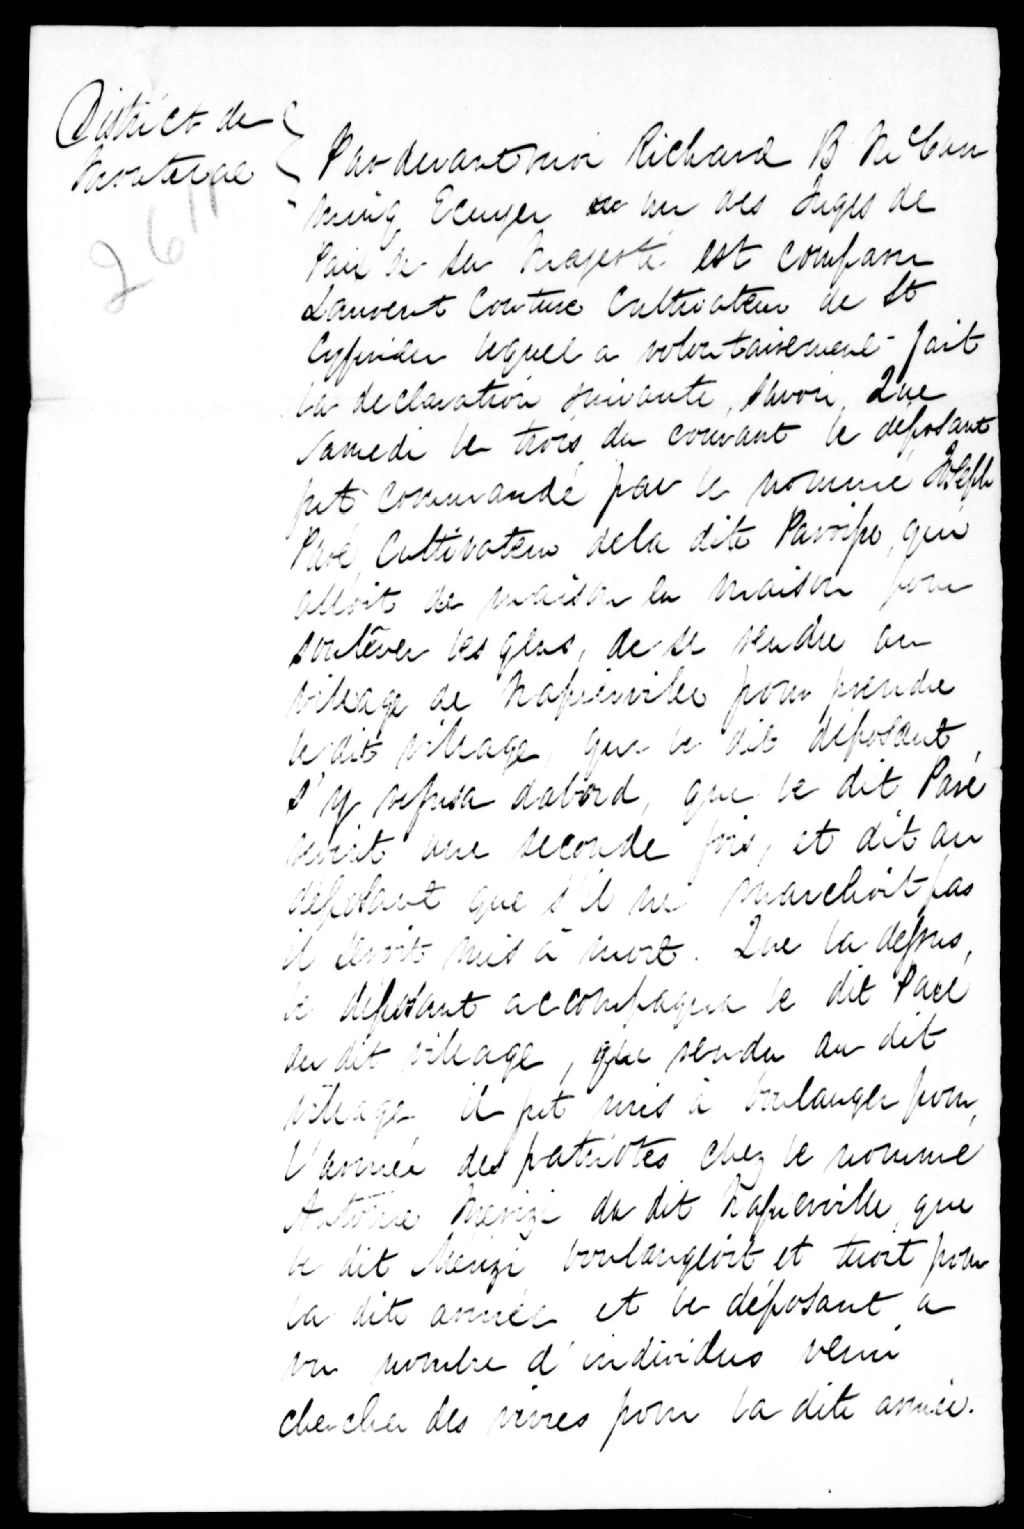 District de
Montreal
2611
Par devant moi Richard B McGin
ning Ecuyer un des Juges de
Paix de Sa Majesté est comparu
Laurent Couture Cultivateur de St
Cyprien lequel a volontairement fait
la declaration suivante, savoir, Que
Samedi le trois du courant le déposant
fut commandé par le nommé Joseph
Paré Cultivateur dela dite Paroisse, qui
alloit de maison en maison pour
soulêver les gens, de se rendre au
village de Napierville pour prendre
le dit village, que le dit déposant,
s'y refusa dabord, que le dit Paré
revint une seconde fois, et dit au
déposant que s'il ne marchoit pas
il seroit mis à mort. Que la dessus,
le déposant accompagna le dit Paré
au dit village, que rendu au dit
village il fut mis à boulanger pour,
l'armée des patriotes chez le nommé
Antoine Merizi du dit Napierville, que
le dit Merizi boulangeoit et tuoit pour
la dite armée et le déposant a
vu nombre d'individus venir
chercher des vivres pour la dite armée.